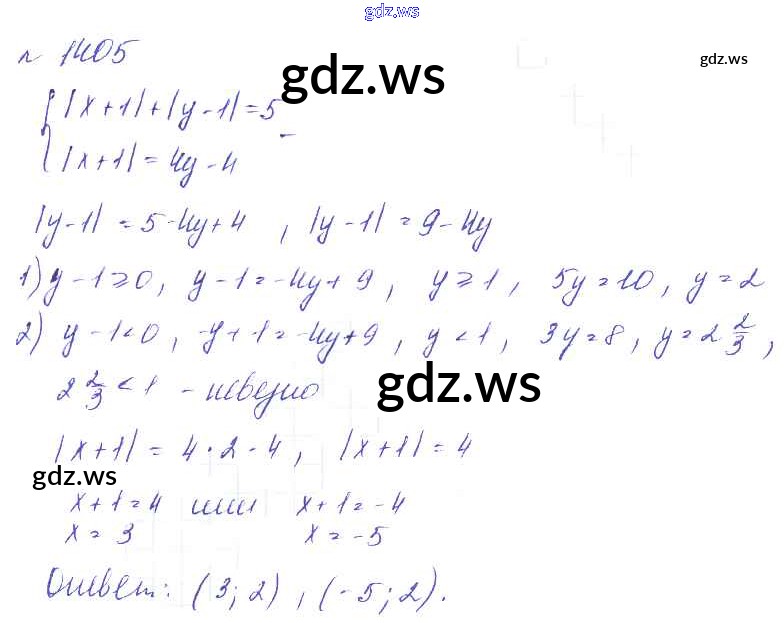 gdz.ws
№ 1405
gdz.ws
gdz.ws
|x+1|+|y-1|=5
|x+1|=4y-4
|y-1|=5-4y+4, |y-1|=9-4y
1) y-1≥0, y-1=-4y+9, y≥1, 5y=10, y=2
2) y-1<0, -y+1=-4y+9, y<1, 3y=8, y=2 2/3,
2 2/3<1 - неверно
gdz.ws
|x+1|=4·2-4, |x+1|=4
gdz.ws
x+1=4 или x+1=-4
x=3 x=-5
Ответ: (3;2), (-5;2).